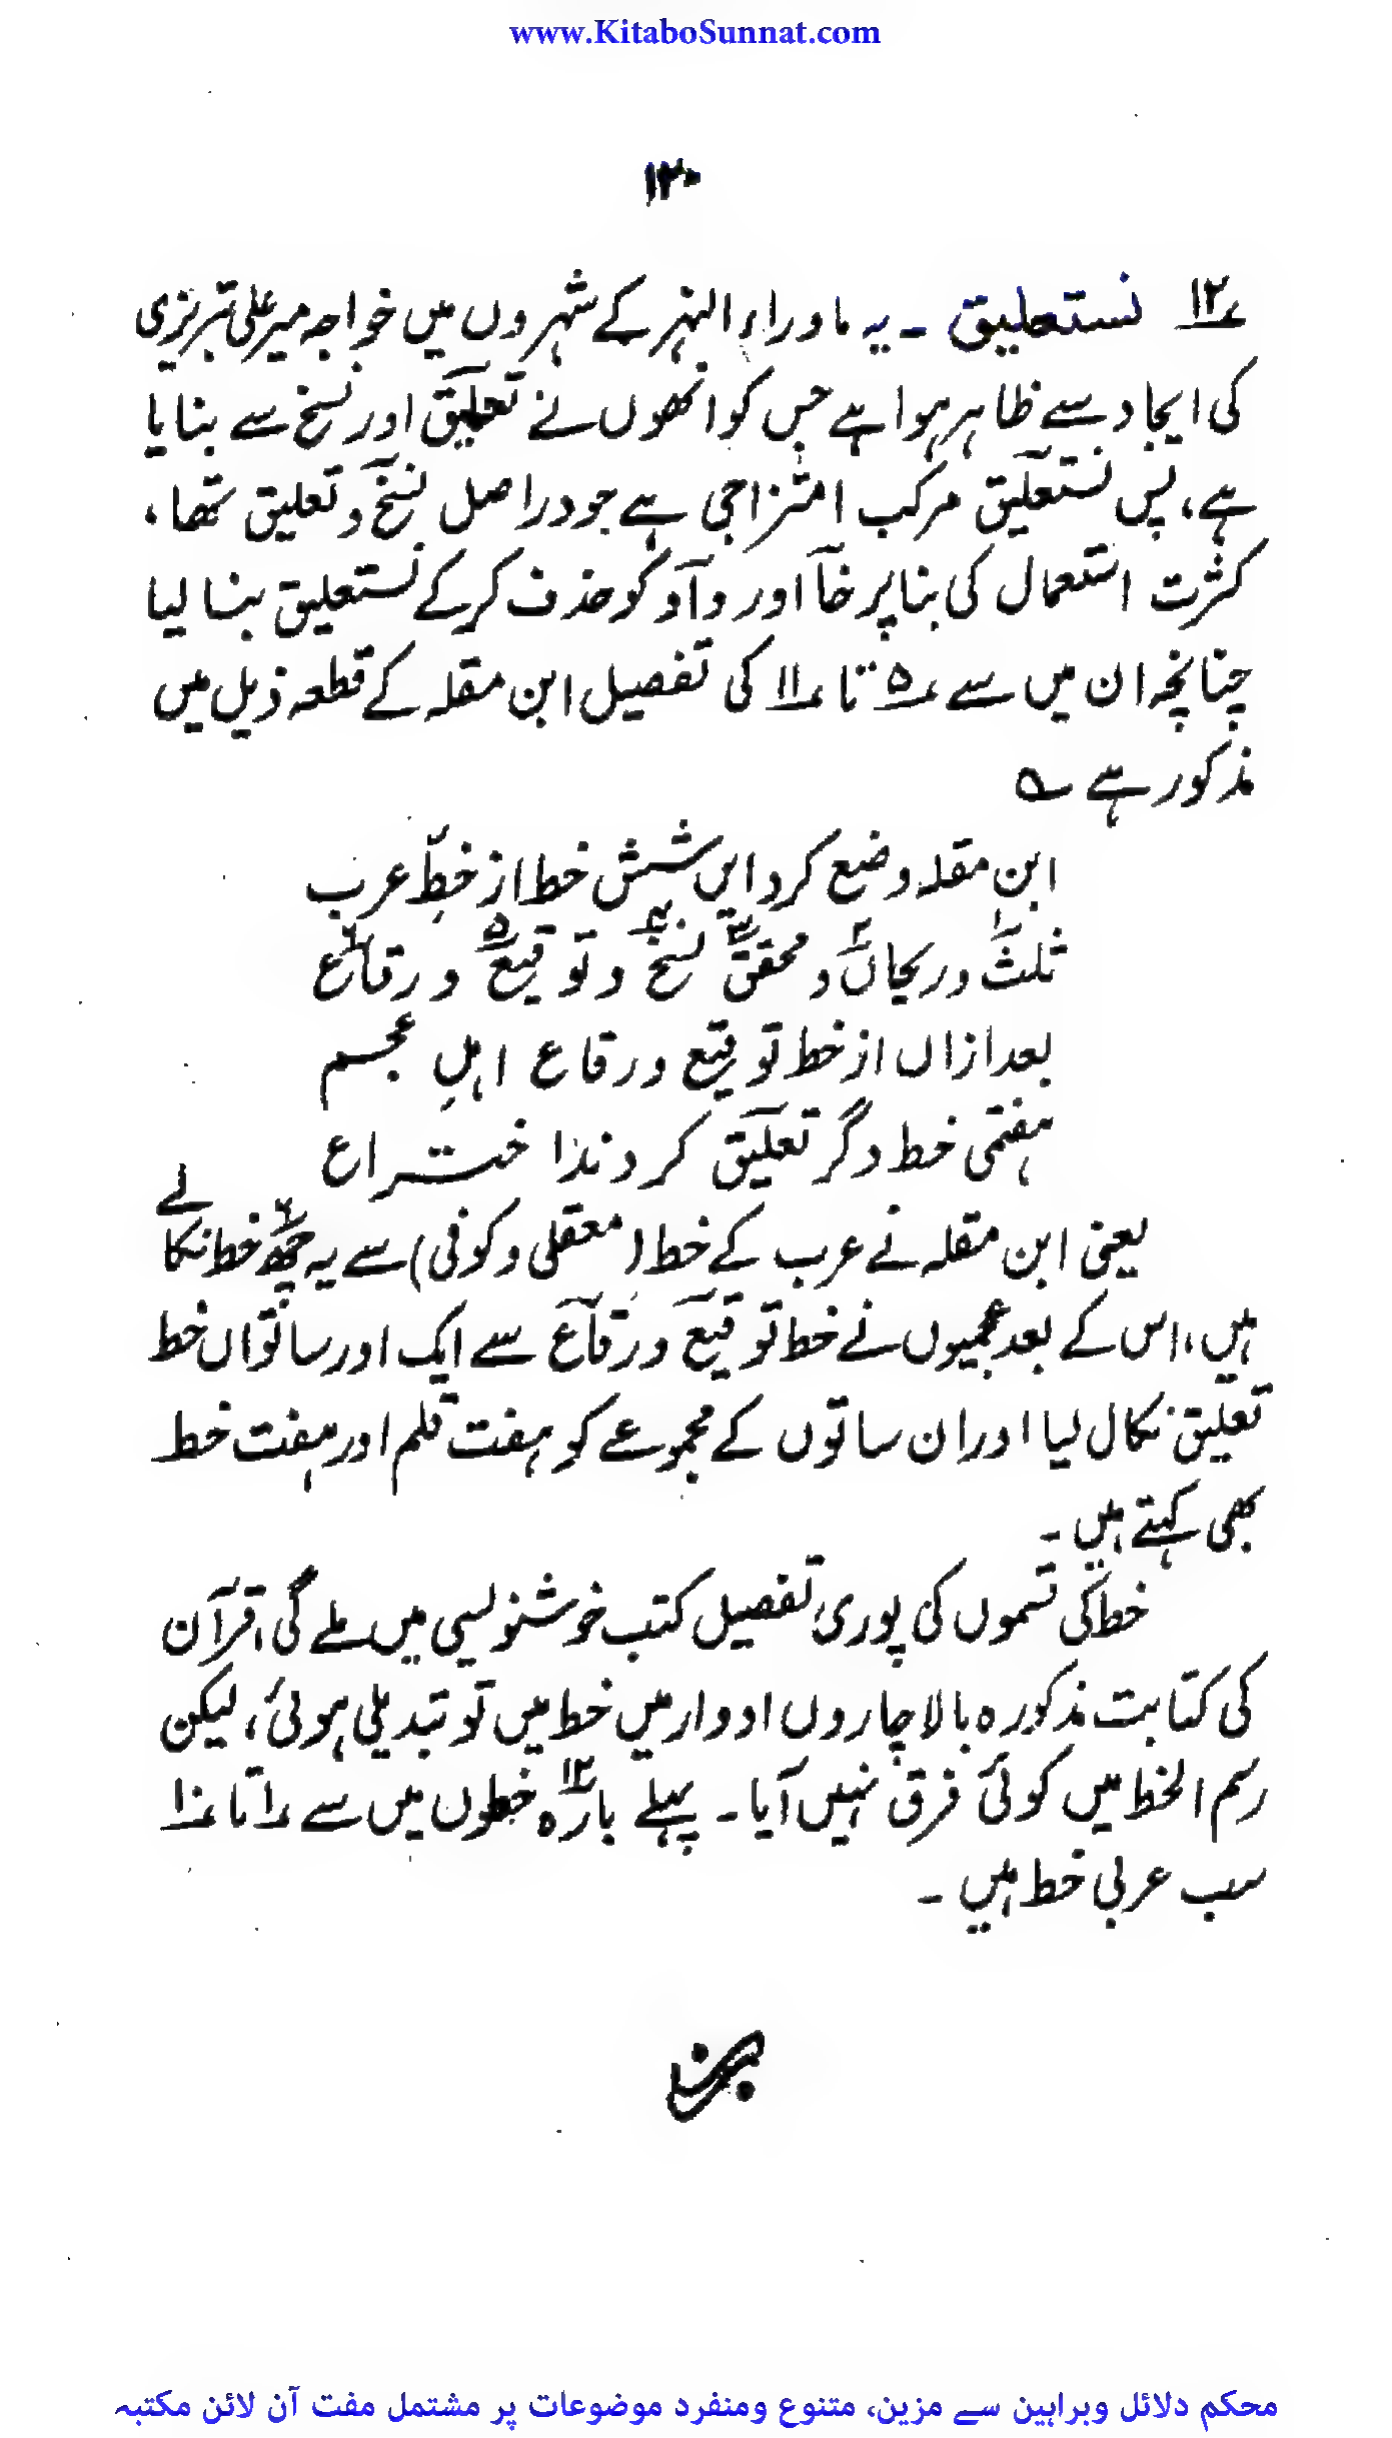 www.KitaboSunnat.com
۱۲۰
۱۲؍ نستعلیق ۔ یہ ماوراء النہر کے شہروں میں خواجہ میر علی تبریزی
کی ایجاد سے ظاہر ہوا ہے جس کو انھوں نے تعلیق اور نسخ سے بنایا
ہے، پس نستعلیق مرکب امتزاجی ہے جو دراصل نسخ و تعلیق تھا،
کثرت استعمال کی بنا پر خآ اور وآو کو حذف کر کے نستعلیق بنا لیا
چنانچہ ان میں سے ۵؍ تا ۱۱؍ کی تفصیل ابن مقلہ کے قطعہ ذیل میں
مذکور ہے ؎
ابن مقلہ وضع کرد ایں شش خط از خطِّ عرب
ثلث۱ و ریحاں۲ و محقق۳ نسخ۴ و توقیع۵ و رقاع۶
بعد ازاں از خط توقیع و رقاع اہلِ عجم
ہفتمی خط دگر تعلیق کردند اختراع
یعنی ابن مقلہ نے عرب کے خط (معقلی و کوفی) سے یہ چھ۶ خط نکالے
ہیں، اس کے بعد عجمیوں نے خط توقیع و رقاع سے ایک اور ساتواں خط
تعلیق نکال لیا اور ان ساتوں کے مجموعے کو ہفت قلم اور ہفت خط
بھی کہتے ہیں ۔
خط کی قسموں کی پوری تفصیل کتب خوشنویسی میں ملے گی، قرآن
کی کتابت مذکورہ بالا چاروں ادوار میں خط میں تو تبدیلی ہوئی، لیکن
رسم الخط میں کوئی فرق نہیں آیا ۔ پہلے بارہ۱۲ خطوں میں سے ۱؍ تا ۱۰؍
سب عربی خط ہیں ۔
محکم دلائل وبراہین سے مزین، متنوع ومنفرد موضوعات پر مشتمل مفت آن لائن مکتبہ